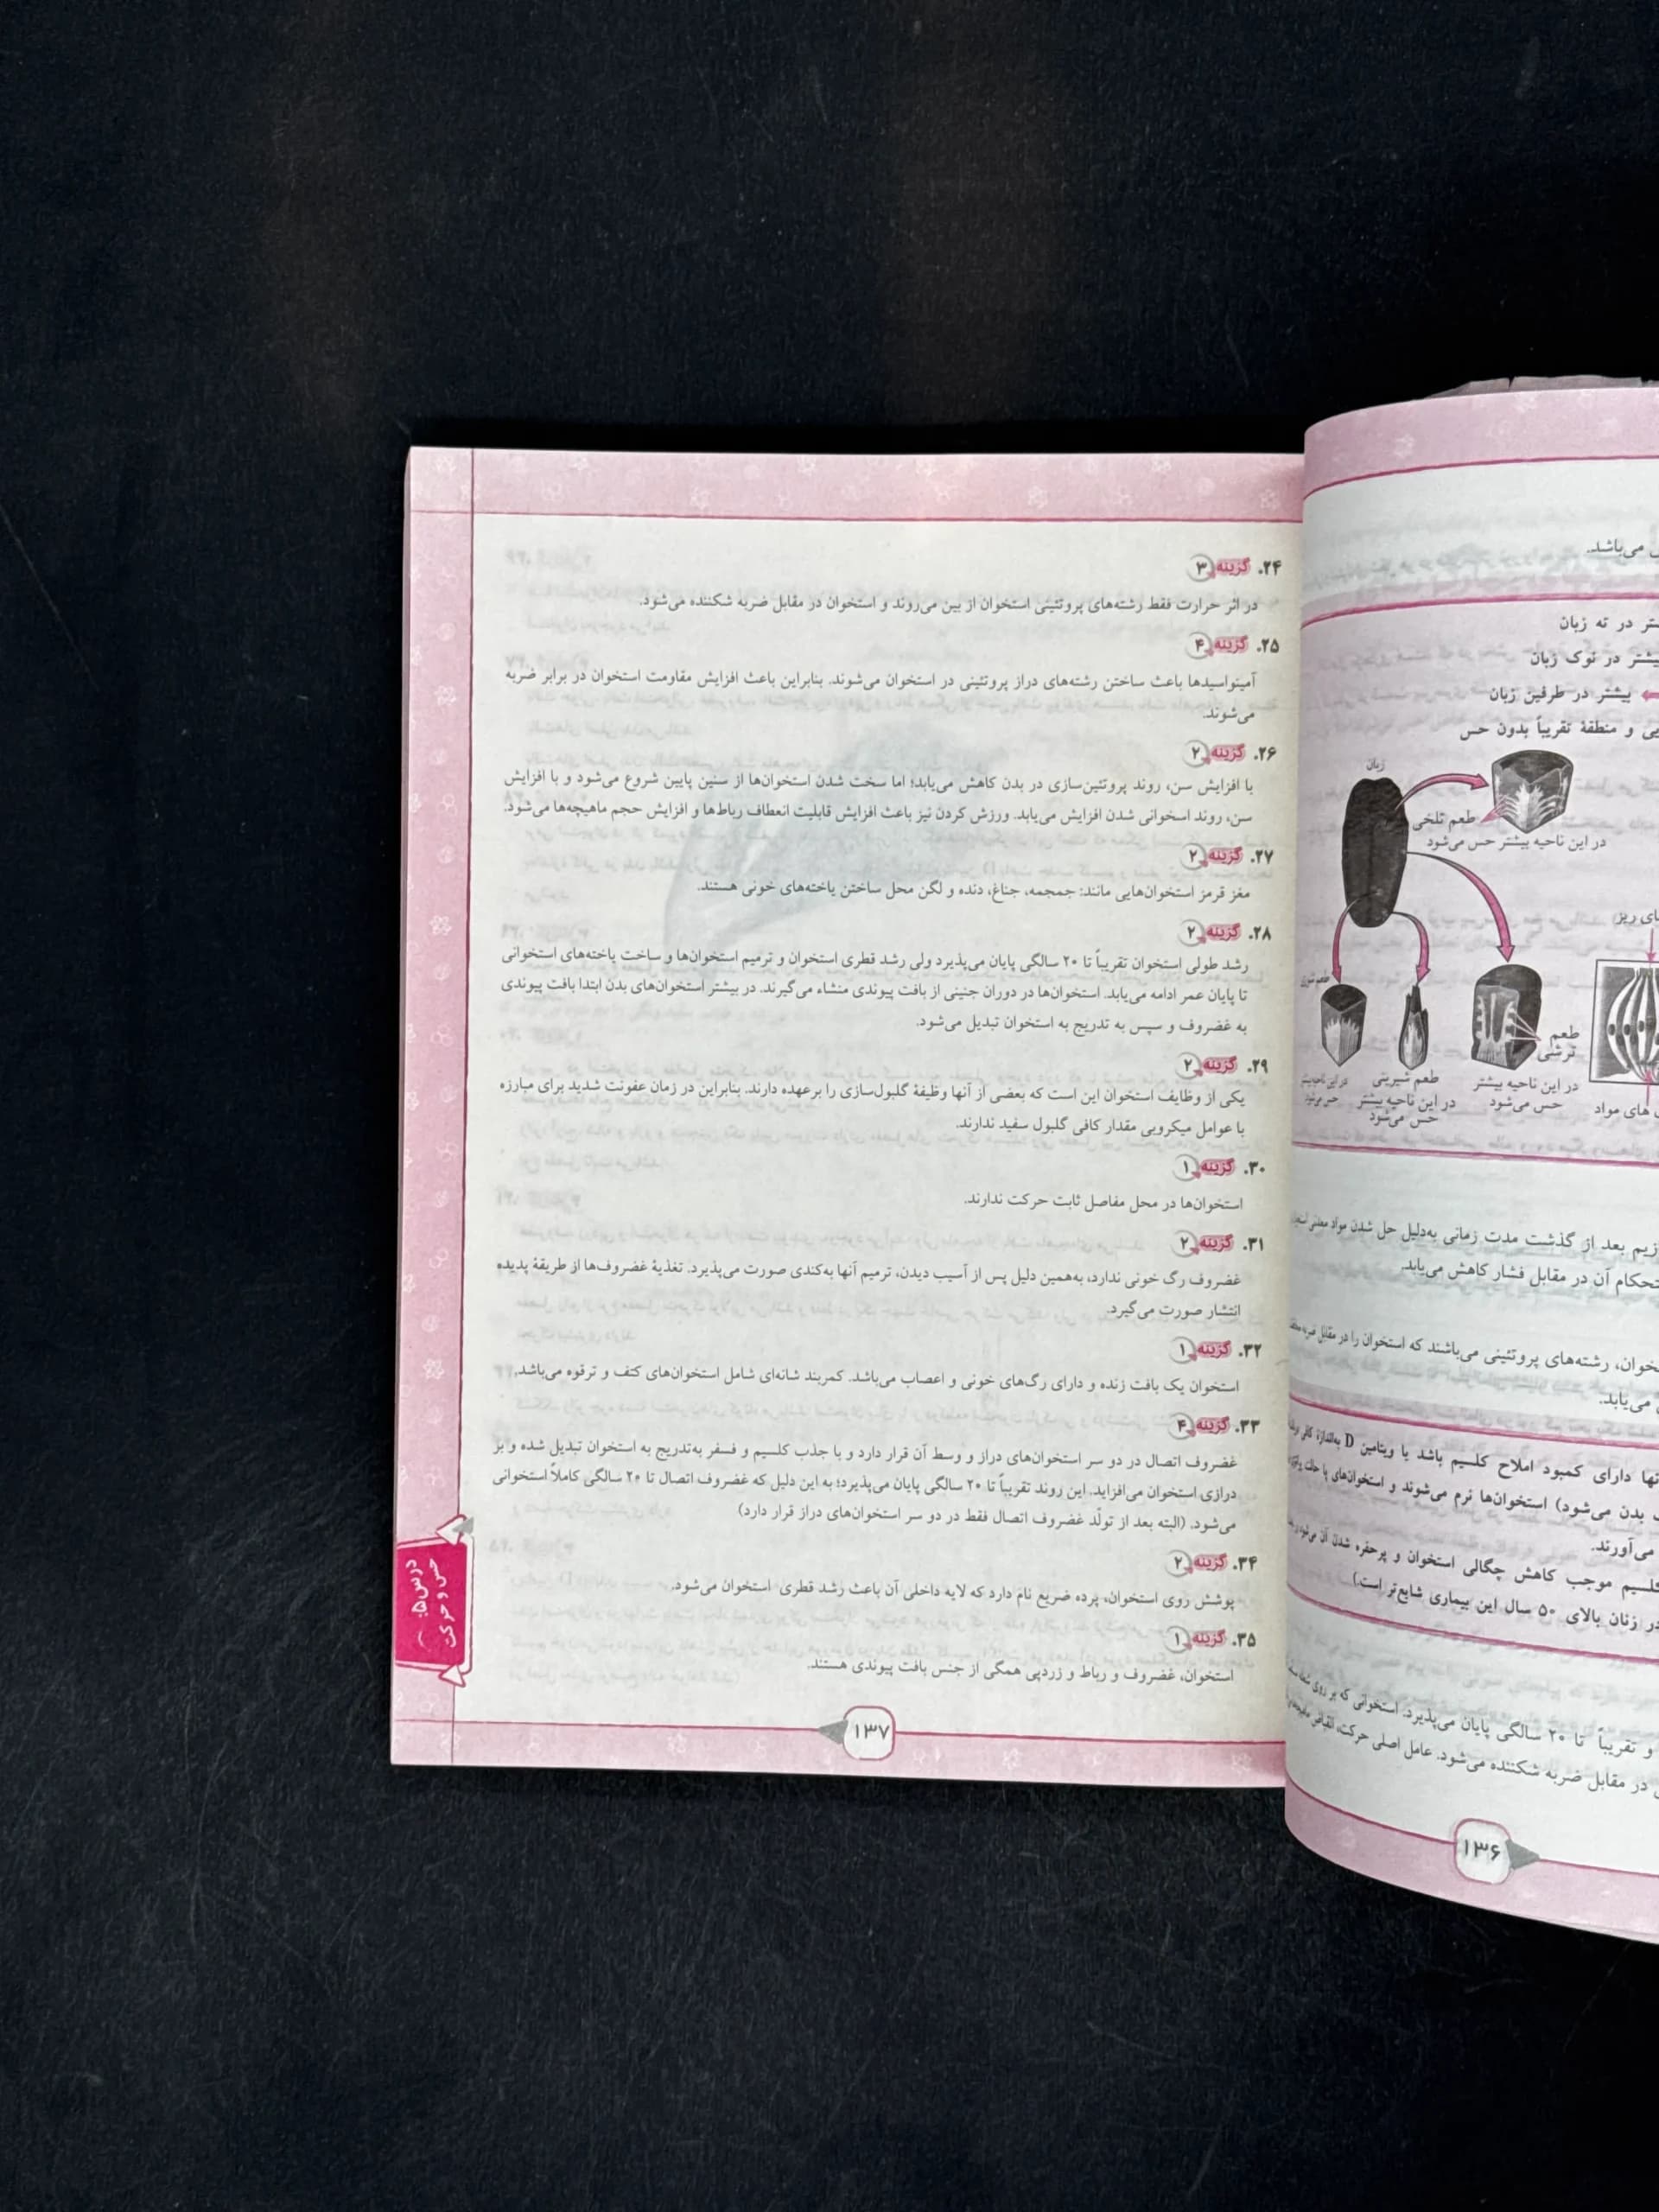 ۲۴. گزینه ۳
در اثر حرارت فقط رشته‌های پروتئینی استخوان از بین می‌روند و استخوان در مقابل ضربه شکننده می‌شود.
۲۵. گزینه ۴
آمینواسیدها باعث ساختن رشته‌های دراز پروتئینی در استخوان می‌شوند. بنابراین باعث افزایش مقاومت استخوان در برابر ضربه
می‌شوند.
۲۶. گزینه ۲
با افزایش سن، روند پروتئین‌سازی در بدن کاهش می‌یابد؛ اما سخت شدن استخوان‌ها از سنین پایین شروع می‌شود و با افزایش
سن، روند اسخوانی شدن افزایش می‌یابد. ورزش کردن نیز باعث افزایش قابلیت انعطاف رباط‌ها و افزایش حجم ماهیچه‌ها می‌شود.
۲۷. گزینه ۲
مغز قرمز استخوان‌هایی مانند: جمجمه، جناغ، دنده و لگن محل ساختن یاخته‌های خونی هستند.
۲۸. گزینه ۲
رشد طولی استخوان تقریباً تا ۲۰ سالگی پایان می‌پذیرد ولی رشد قطری استخوان و ترمیم استخوان‌ها و ساخت یاخته‌های استخوانی
تا پایان عمر ادامه می‌یابد. استخوان‌ها در دوران جنینی از بافت پیوندی منشاء می‌گیرند. در بیشتر استخوان‌های بدن ابتدا بافت پیوندی
به غضروف و سپس به تدریج به استخوان تبدیل می‌شود.
۲۹. گزینه ۲
یکی از وظایف استخوان این است که بعضی از آنها وظیفهٔ گلبول‌سازی را برعهده دارند. بنابراین در زمان عفونت شدید برای مبارزه
با عوامل میکروبی مقدار کافی گلبول سفید ندارند.
۳۰. گزینه ۱
استخوان‌ها در محل مفاصل ثابت حرکت ندارند.
۳۱. گزینه ۲
غضروف رگ خونی ندارد، به‌همین دلیل پس از آسیب دیدن، ترمیم آنها به‌کندی صورت می‌پذیرد. تغذیهٔ غضروف‌ها از طریقهٔ پدیده
انتشار صورت می‌گیرد.
۳۲. گزینه ۱
استخوان یک بافت زنده و دارای رگ‌های خونی و اعصاب می‌باشد. کمربند شانه‌ای شامل استخوان‌های کتف و ترقوه می‌باشد.
۳۳. گزینه ۴
غضروف اتصال در دو سر استخوان‌های دراز و وسط آن قرار دارد و با جذب کلسیم و فسفر به‌تدریج به استخوان تبدیل شده و بر
درازی استخوان می‌افزاید. این روند تقریباً تا ۲۰ سالگی پایان می‌پذیرد؛ به این دلیل که غضروف اتصال تا ۲۰ سالگی کاملاً استخوانی
می‌شود. (البته بعد از تولّد غضروف اتصال فقط در دو سر استخوان‌های دراز قرار دارد)
۳۴. گزینه ۲
پوشش روی استخوان، پرده ضریع نام دارد که لایه داخلی آن باعث رشد قطری استخوان می‌شود.
۳۵. گزینه ۱
استخوان، غضروف و رباط و زردپی همگی از جنس بافت پیوندی هستند.
درس ۵:
حس و حرکت
۱۳۷
می‌باشد.
در ته زبان
بیشتر در نوک زبان
بیشتر در طرفین زبان
و منطقهٔ تقریباً بدون حس
زبان
طعم تلخی
در این ناحیه بیشتر حس می‌شود
ریز
طعم
ترشی
در این ناحیه بیشتر
حس می‌شود
طعم شیرینی
در این ناحیه بیشتر
حس می‌شود
های مواد
بعد از گذشت مدت زمانی به‌دلیل حل شدن مواد معدنی
آن در مقابل فشار کاهش می‌یابد.
رشته‌های پروتئینی می‌باشند که استخوان را در مقابل ضربه
می‌یابد.
دارای کمبود املاح کلسیم باشد یا ویتامین D به‌اندازهٔ کافی
بدن می‌شود) استخوان‌ها نرم می‌شوند و استخوان‌های پا حالت
می‌آورند.
موجب کاهش چگالی استخوان و پرحفره شدن آن می‌شود
در زنان بالای ۵۰ سال این بیماری شایع‌تر است.)
و تقریباً تا ۲۰ سالگی پایان می‌پذیرد. استخوانی که بر روی
در مقابل ضربه شکننده می‌شود. عامل اصلی حرکت، انقباض
۱۳۶